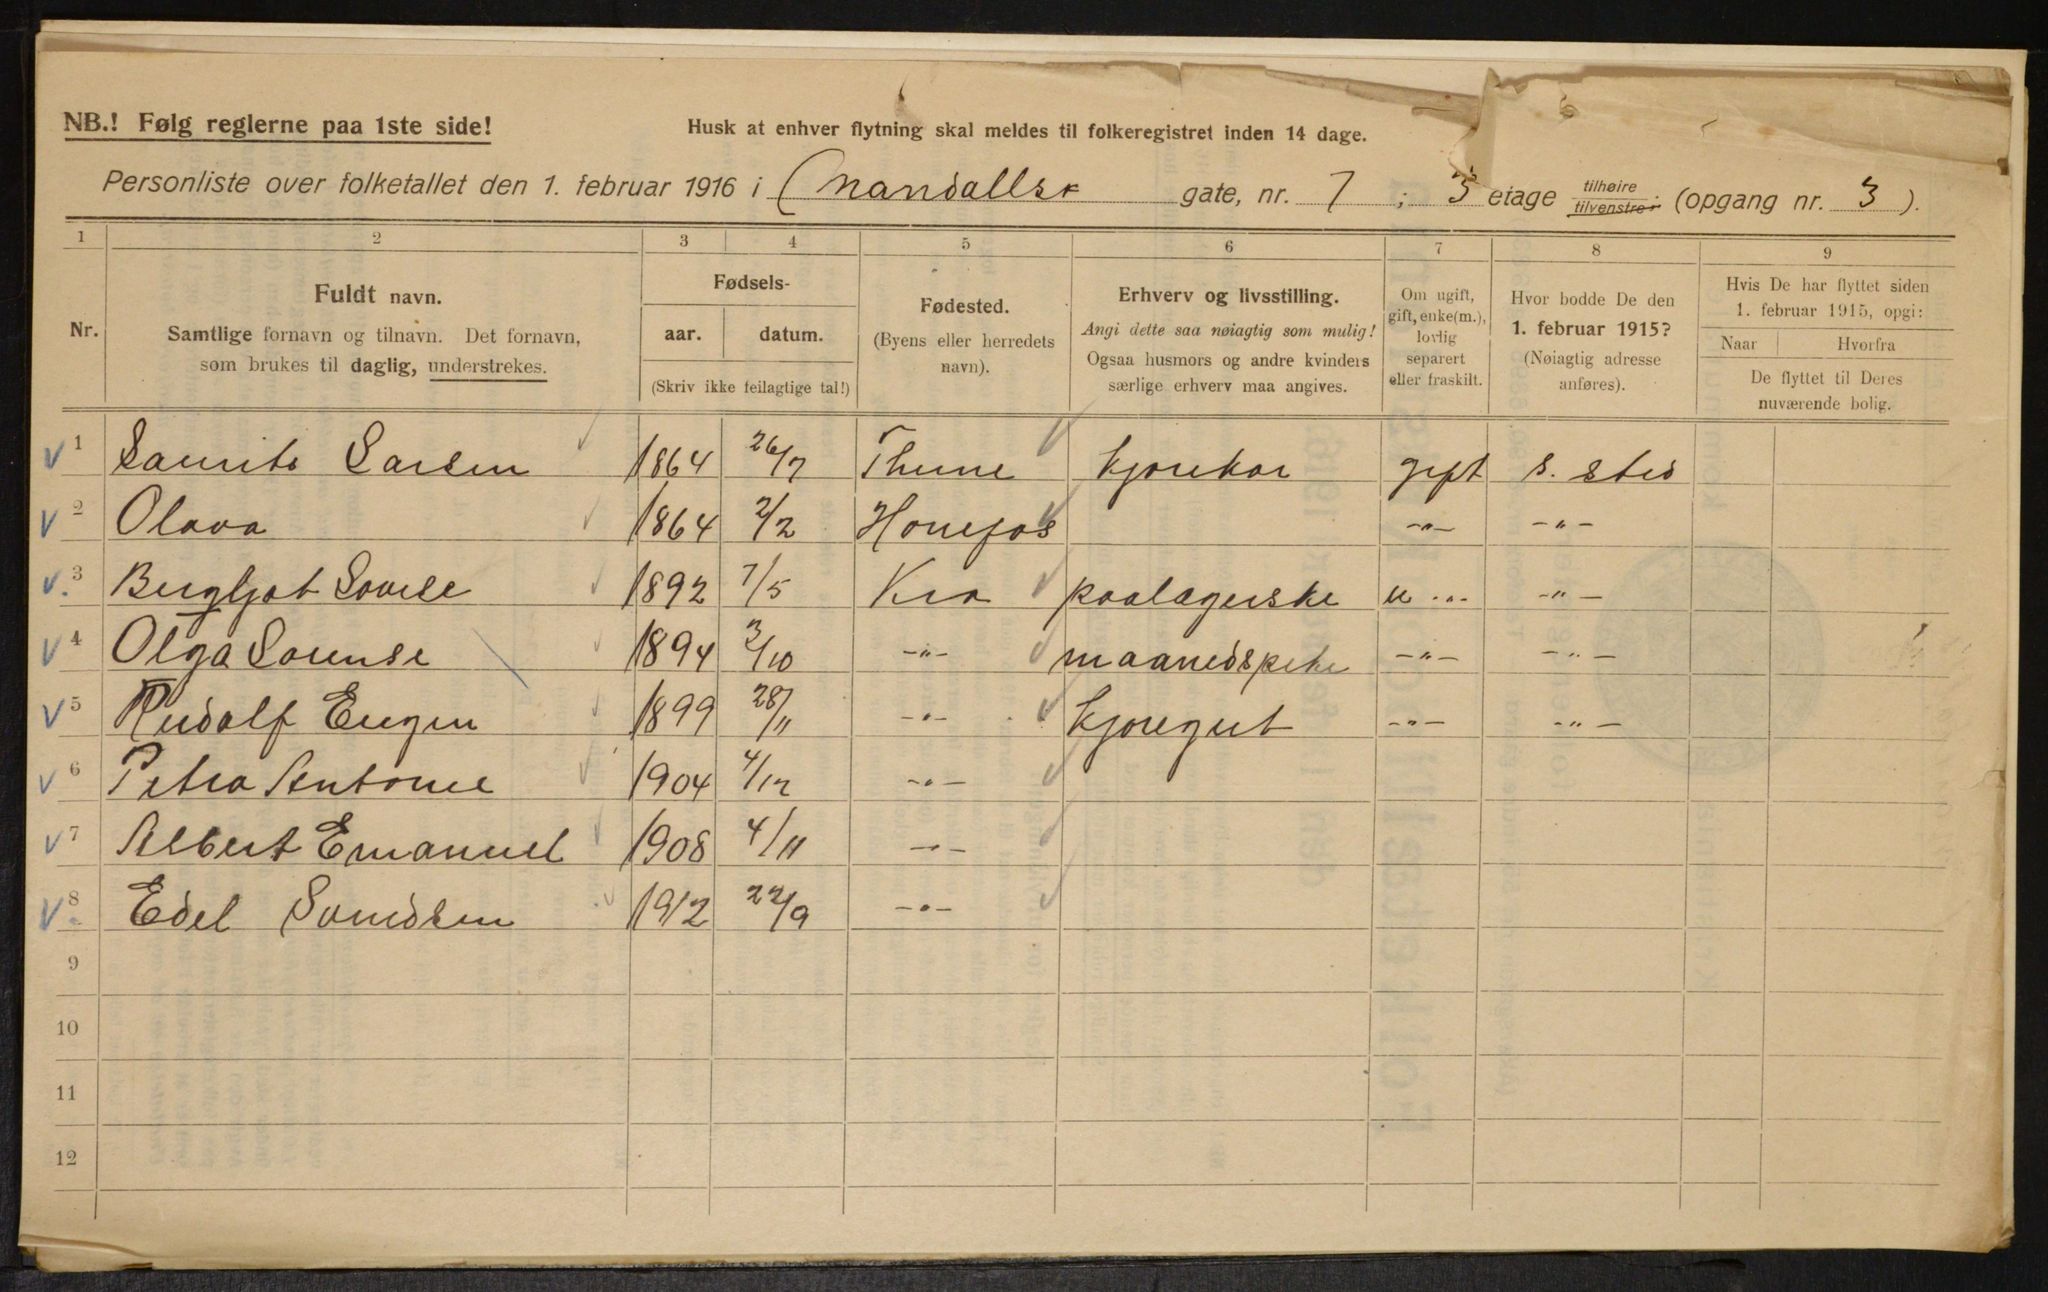 NB.! Følg reglerne paa 1ste side!
Husk at enhver flytning skal meldes til folkeregistret inden 14 dage.
Personliste over folketallet den 1. februar 1916 i Mandalls gate, nr. 7 ; 3 etage tilhøire tilvenstre (opgang nr. 3 ).
1 2 3 4 5 6 7 8 9
Nr.
Fuldt navn.
Samtlige fornavn og tilnavn. Det fornavn,
som brukes til daglig, understrekes.
Fødsels-
aar. datum.
(Skriv ikke feilagtige tal!)
Fødested.
(Byens eller herredets
navn).
Erhverv og livsstilling.
Angi dette saa nøiagtig som mulig!
Ogsaa husmors og andre kvinders
særlige erhverv maa angives.
Om ugift,
gift, enke(m.),
lovlig
separert
eller fraskilt.
Hvor bodde De den
1. februar 1915?
(Nøiagtig adresse
anføres).
Hvis De har flyttet siden
1. februar 1915, opgi:
Naar Hvorfra
De flyttet til Deres
nuværende bolig.
1 Laurits Larsen 1864 26/7 Thune kjørekar gift s. sted
2 Olava 1864 2/2 Hønefos -"- -"-
3 Bergljot Lovise 1892 7/5 Kra paalægerske u -"-
4 Olga Lovense 1894 3/10 -"- maanedspike -"- -"-
5 Rudolf Eugen 1899 28/11 -"- kjøregut -"- -"-
6 Petra Antonie 1904 4/12 -"-
7 Albert Emanuel 1908 4/11 -"-
8 Edel Svendsen 1912 22/9 -"-
9
10
11
12